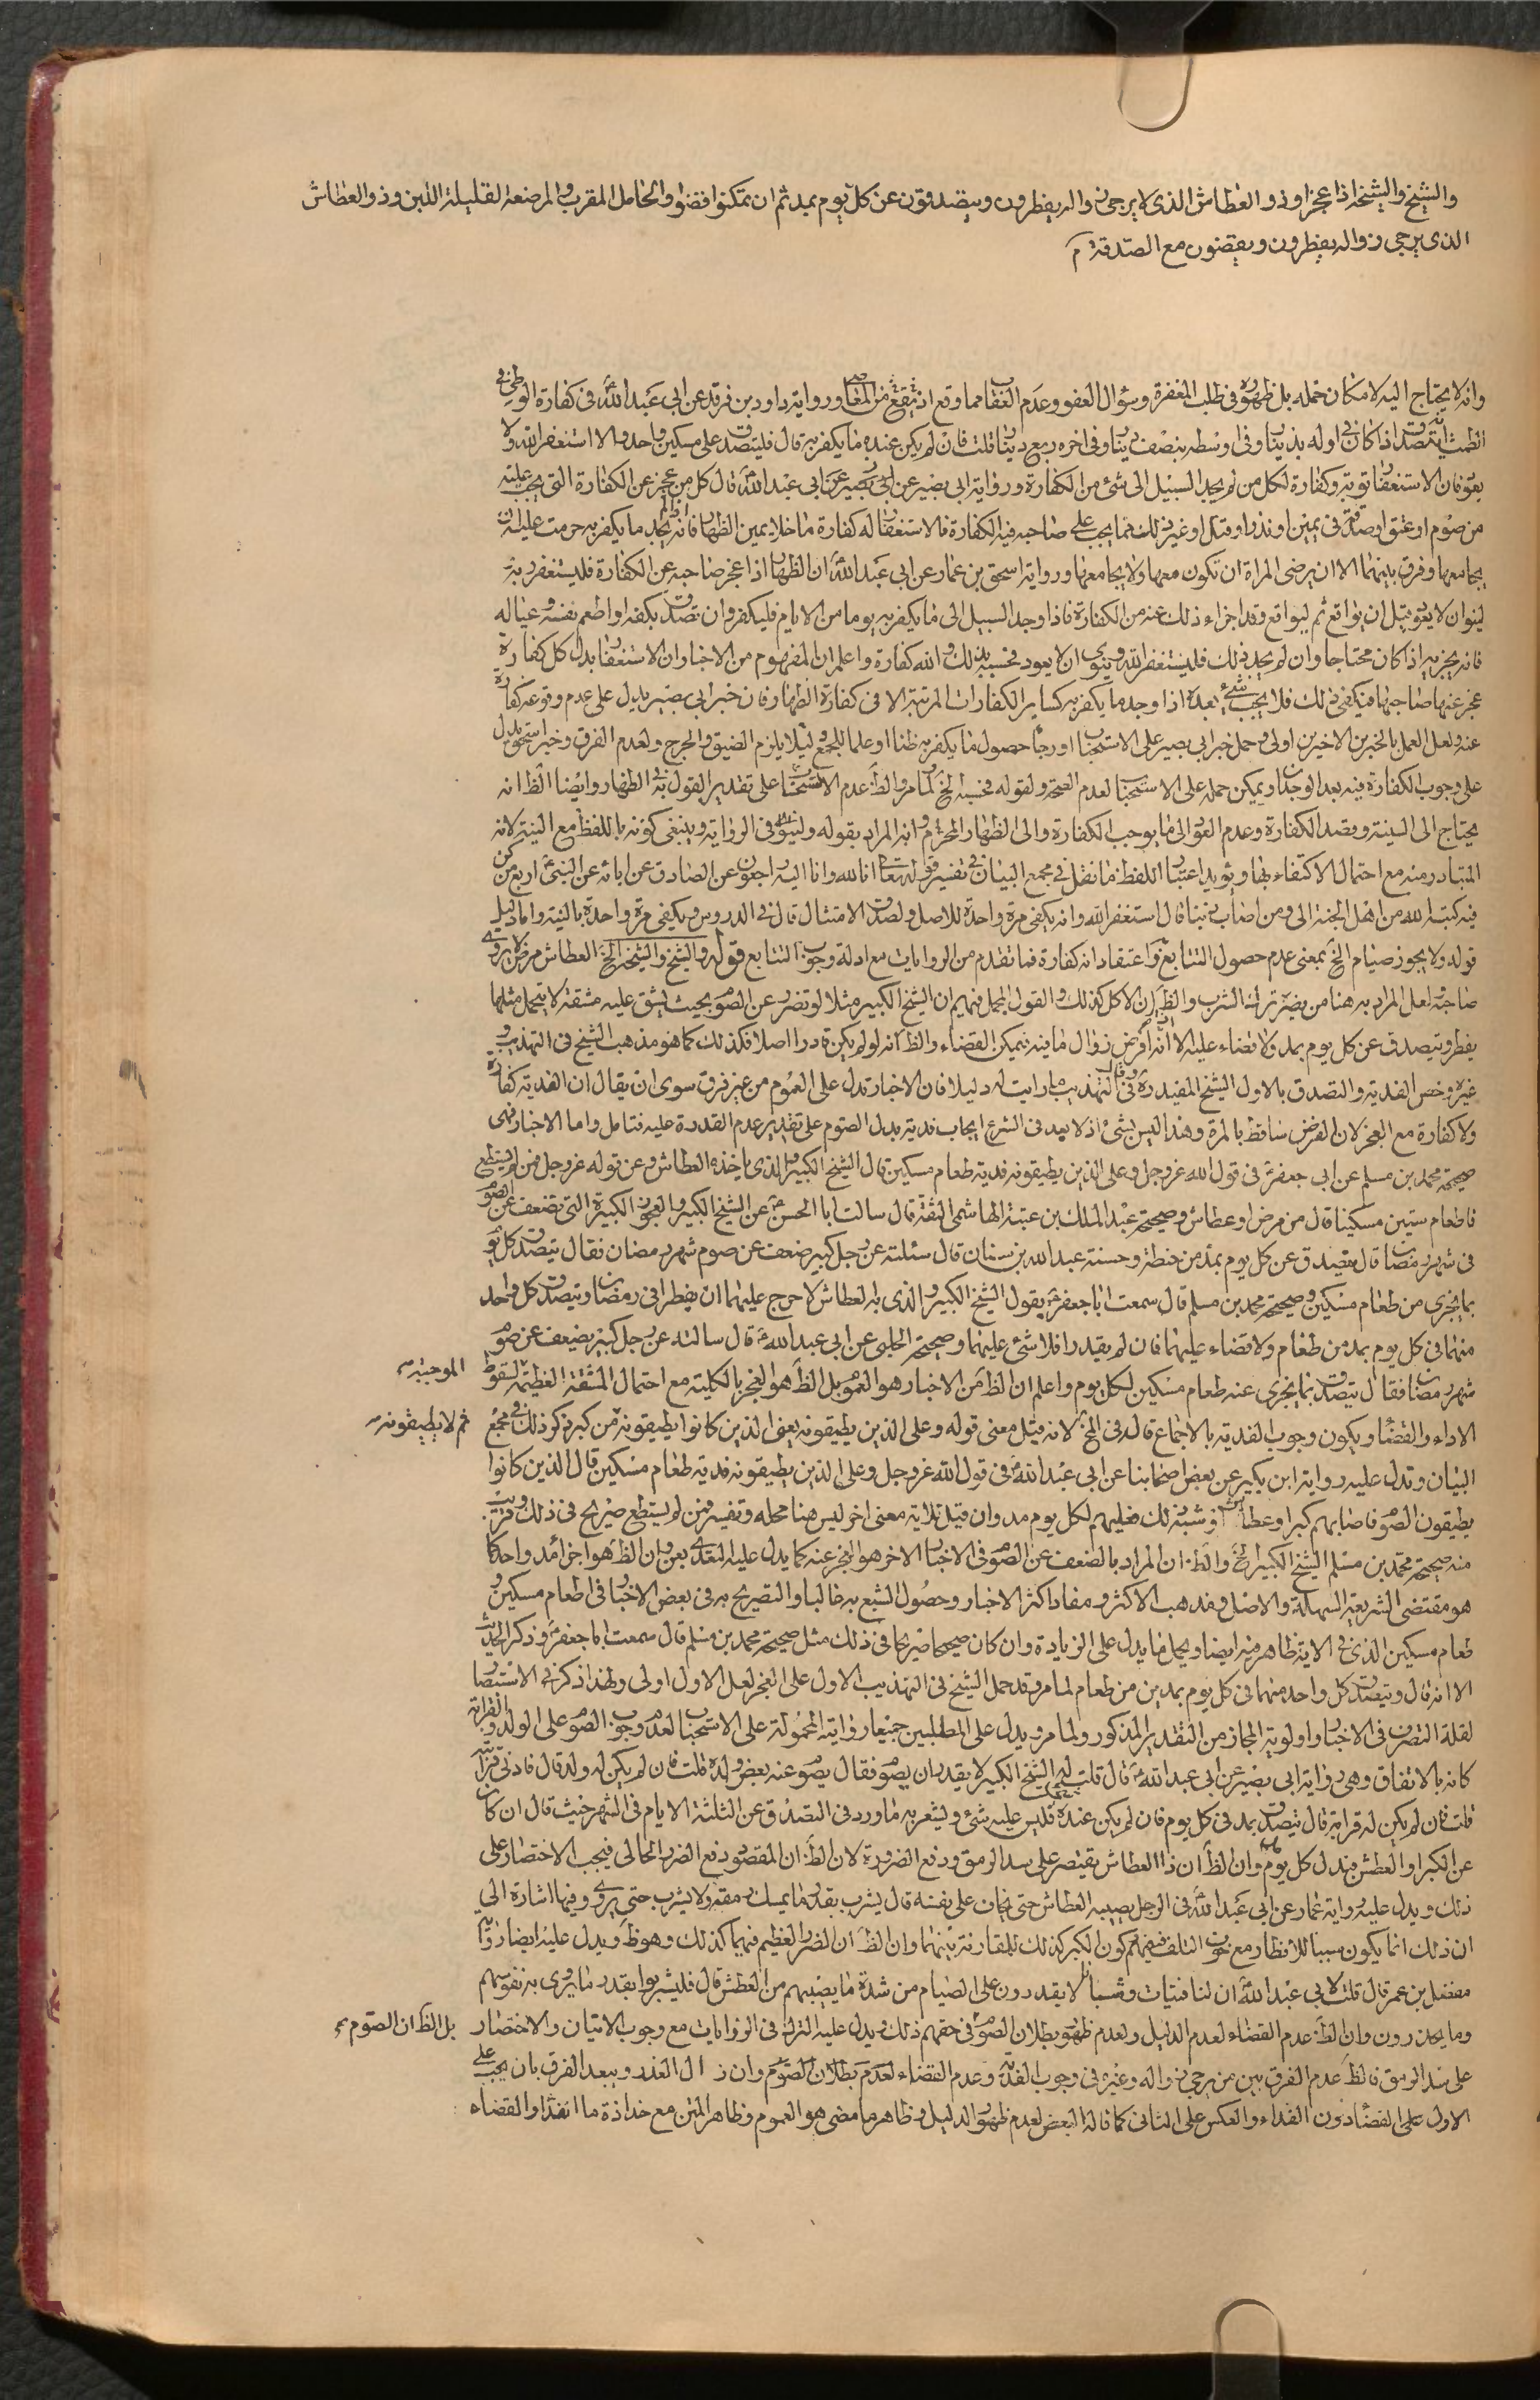 والشيخ والشيخة اذا عجزا وذو العطاش الذى لا يرجى زواله يفطرون ويتصدقون عن كل يوم بمد ثم ان تمكنوا قضوا والحامل المقرب والمرضعة القليلة اللبن وذو العطاش
الذى يرجى زواله يفطرون ويقضون مع الصدقة م
وانه لا يحتاج اليه لامكان حمله بل ظهوره فى طلب المغفرة وسؤال العفو وعدم العقاب مما وقع اذ ورواية داود بن فرقد عن ابى عبد الله فى كفارة الوطى فى
الطمث انه يتصدق اذا كان فى اوله بدينار وفى اوسطه بنصف دينار وفى اخره ربع دينار قلت فان لم يكن عنده ما يكفر به قال فليتصدق على مسكين واحد والا استغفر الله ولا
يعود فان الاستغفار توبة وكفارة لكل من لم يجد السبيل الى شئ من الكفارة ورواية ابى بصير عن ابى عبد الله قال كل من عجز عن الكفارة التى يجب عليه
من صوم او عتق او صدقة فى يمين او نذر او قتل او غير ذلك مما يجب على صاحبه فيه الكفارة فالاستغفار له كفارة ما خلا يمين الظهار فانه اذا لم يجد ما يكفر به حرمت عليه ان
يجامعها وفرق بينهما الا ان يرضى المراة ان تكون معها ولا يجامعها ورواية اسحق بن عمار عن ابى عبد الله ان الظهار اذا عجز صاحبه عن الكفارة فليستغفر ربه
لينوان لا يعود قبل ان يواقع ثم ليواقع وقد اجزاء ذلك عنه من الكفارة فاذا وجد السبيل الى ما يكفر به يوما من الايام فليكفر وان تصدق بكفه او اطعم نفسه وعياله
فانه يجزيه اذا كان محتاجا وان لم يجد ذلك فليستغفر الله وينوى ان لا يعود فحسبه بذلك والله كفارة واعلم ان المفهوم من الاخبار ان الاستغفار بدل كل كفارة
عجز عنها صاحبها فيكفى ذلك فلا يجب شئ بعده اذا وجد ما يكفر به كساير الكفارات المرتبة الا فى كفارة الظهار فان خبر ابى بصير يدل على عدم وقوعه كفارة
عنه ولعل العمل بالخبرين الاخيرين اولى وحمل خبر ابى بصير على الاستحباب او رجاء حصول ما يكفر به ظنا او علما للجمع ولئلا يلزم الضيق والحرج ولعدم الفرق وخبر اسحق يدل
على وجوب الكفارة فيه بعد الوجدان ويمكن حمله على الاستحباب لعدم الصحة ولقوله فحسبه الخ لما مر والظ عدم الاستحباب على تقدير القول به فى الظهار وايضا الظ انه
يحتاج الى النية وقصد الكفارة وعدم العود الى ما يوجب الكفارة والى الظهار المحرم وانه المراد بقوله ولينو فى الرواية وينبغى كونه باللفظ مع النية لانه
المتبادر منه مع احتمال الاكتفاء بها ويؤيد اعتبار اللفظ ما نقل فى مجمع البيان فى تفسير قوله تعالى انا لله وانا اليه راجعون عن الصادق عن ابائه عن النبى اربع من كن
فيه كتبه الله من اهل الجنة الى ومن اصاب ذنبا قال استغفر الله وانه يكفى مرة واحدة للاصل ولصدق الامتثال قال فى الدروس ويكفى مرة واحدة بالنية واما دليل
قوله ولا يجوز صيام الخ بمعنى عدم حصول التتابع واعتقاد انه كفارة فما تقدم من الروايات مع ادلة وجوب التتابع قوله والشيخ والشيخة الخ العطاش مرض لا يروى
صاحبه ولعل المراد به هنا من يضره ترك الشرب والظ ان الاكل كذلك والقول المجمل فيهم ان الشيخ الكبير مثلا لو تضرر عن الصوم بحيث يشق عليه مشقة لا يتحمل مثلها
يفطر ويتصدق عن كل يوم بمد ولا قضاء عليه الا انه ان فرض زوال ما فيه فيمكن القضاء والظ انه لو لم يكن قادرا اصلا فكذلك كما هو مذهب الشيخ فى التهذيب و
غيره وخص الفدية والتصدق بالاول الشيخ المفيد ره وقال فى التهذيب ما رايت له دليلا فان الاخبار تدل على العموم من غير فرق سوى ان يقال ان الفدية كفارة
ولا كفارة مع العجز لان الفرض ساقط بالمرة وهذا ليس بشئ اذ لا بعد فى الشرع ايجاب فدية بدل الصوم على تقدير عدم القدرة عليه فتامل واما الاخبار فهى
صحيحة محمد بن مسلم عن ابى جعفر فى قول الله عز وجل وعلى الذين يطيقونه فدية طعام مسكين قال الشيخ الكبير والذى ياخذه العطاش وعن قوله عز وجل فمن لم يستطع
فاطعام ستين مسكينا قال من مرض او عطاش وصحيحة عبد الملك بن عتبة الهاشمى الثقة قال سالت ابا الحسن عن الشيخ الكبير والعجوز الكبيرة التى تضعف عن الصوم
فى شهر رمضان قال يتصدق عن كل يوم بمد من حنطة وحسنة عبد الله بن سنان قال سئلته عن رجل كبير ضعف عن صوم شهر رمضان فقال يتصدق كل يوم
بما يجزى من طعام مسكين وصحيحة محمد بن مسلم قال سمعت ابا جعفر يقول الشيخ الكبير والذى به العطاش لا حرج عليهما ان يفطرا فى رمضان ويتصدق كل واحد
منهما فى كل يوم بمد من طعام ولا قضاء عليهما فان لم يقدرا فلا شئ عليهما وصحيحة الحلبى عن ابى عبد الله قال سالته عن رجل كبير يضعف عن صوم
شهر رمضان فقال يتصدق بما يجزى عنه طعام مسكين لكل يوم واعلم ان الظ من الاخبار هو العموم بل الظ هو العجز بالكلية مع احتمال المشقة العظيمة لسقوط
الموجبة
الاداء والقضاء ويكون وجوب الفدية بالاجماع قاله فى لانه قيل معنى قوله وعلى الذين يطيقونه يعنى الذين كانوا يطيقونه من كبر ذكر ذلك فى مجمع
ثم لا يطيقونه
البيان وتدل عليه رواية ابن بكير عن بعض اصحابنا عن ابى عبد الله فى قول الله عز وجل وعلى الذين يطيقونه فدية طعام مسكين قال الذين كانوا
يطيقون الصوم فاصابهم كبر او عطاش او شبه ذلك فعليهم لكل يوم مد وان قيل للاية معنى اخر ليس هنا محله وتفسير فمن لم يستطع صريح فى ذلك وقريب
منه صحيحة محمد بن مسلم الشيخ الكبير الخ والظ ان المراد بالضعف عن الصوم فى الاخبار الاخر هو العجز عنه كما يدل عليه التعدى بعن وان الظ هو اجزاء مد واحد كما
هو مقتضى الشريعة السهلة والاصل ومذهب الاكثر ومفاد اكثر الاخبار وحصول الشبع به غالبا والتصريح به فى بعض الاخبار فى اطعام مسكين و
طعام مسكين الذى فى الاية ظاهر فيه ايضا ويحمل ما يدل على الزيادة وان كان صحيحا صريحا فى ذلك مثل صحيحة محمد بن مسلم قال سمعت ابا جعفر وذكر الحديث
الا انه قال ويتصدق كل واحد منهما فى كل يوم بمدين من طعام لما مر وقد حمل الشيخ فى التهذيب الاول على العجز لعل الاول اولى ولهذا ذكره فى الاستبصار
لقلة التصرف فى الاخبار واولوية المجاز من التقدير المذكور ولما مر ويدل على المطلبين جميعا رواية المحمولة على الاستحباب لعدم وجوب الصوم على الولد وذى القرابة
كانه بالاتفاق وهى رواية ابى بصير عن ابى عبد الله قال قلت له الشيخ الكبير لا يقدر ان يصوم فقال يصوم عنه بعض ولده قلت فان لم يكن له ولد قال فادنى قرابته
قلت فان لم يكن له قرابة قال تيصدق بمد فى كل يوم فان لم يكن عنده شئ فليس عليه شئ ويشعر به ما ورد فى التصدق عن الثلثة الايام فى الشهر حيث قال ان كان
عن الكبر او العطش فبدل كل يوم مد وان الظ ان ذا العطاش يقتصر على سد الرمق ودفع الضرورة لان الظ ان المقصود دفع الضرر الحالى فيجب الاختصار على
ذلك ويدل عليه رواية عمار عن ابى عبد الله فى الرجل يصيبه العطاش حتى يخاف على نفسه قال يشرب بقدر ما يمسك رمقه ولا يشرب حتى يروى وفيها اشارة الى
ان ذلك انما يكون سببا للافطار مع خوف التلف فيفهم كون الكبر كذلك للمقارنة بينهما وان الظ ان الضرر العظيم فيهما كذلك وهو ظ ويدل عليه ايضا رواية
مفضل بن عمر قال قلت لابى عبد الله ان لنا فتيات وشبانا لا يقدرون على الصيام من شدة ما يصيبهم من العطش قال فليشربوا بقدر ما يروى به نفوسهم
وما يحذرون وان الظ عدم القضاء لعدم الدليل ولعدم ظهور بطلان الصوم فى حقهم ذلك ويدل عليه الترك فى الروايات مع وجوب الاتيان والاختصار
بل الظ ان الصوم
على سد الرمق فالظ عدم الفرق بين من يرجى زواله وغيره فى وجوب الفدية وعدم القضاء لعدم بطلان الصوم وان زال العذر ويبعد الفرق بان يجب على
الاول على القضاء دون الفداء والعكس على الثانى كما قاله البعض لعدم ظهور الدليل وظاهر ما مضى هو العموم وظاهر المتن مع القضاء